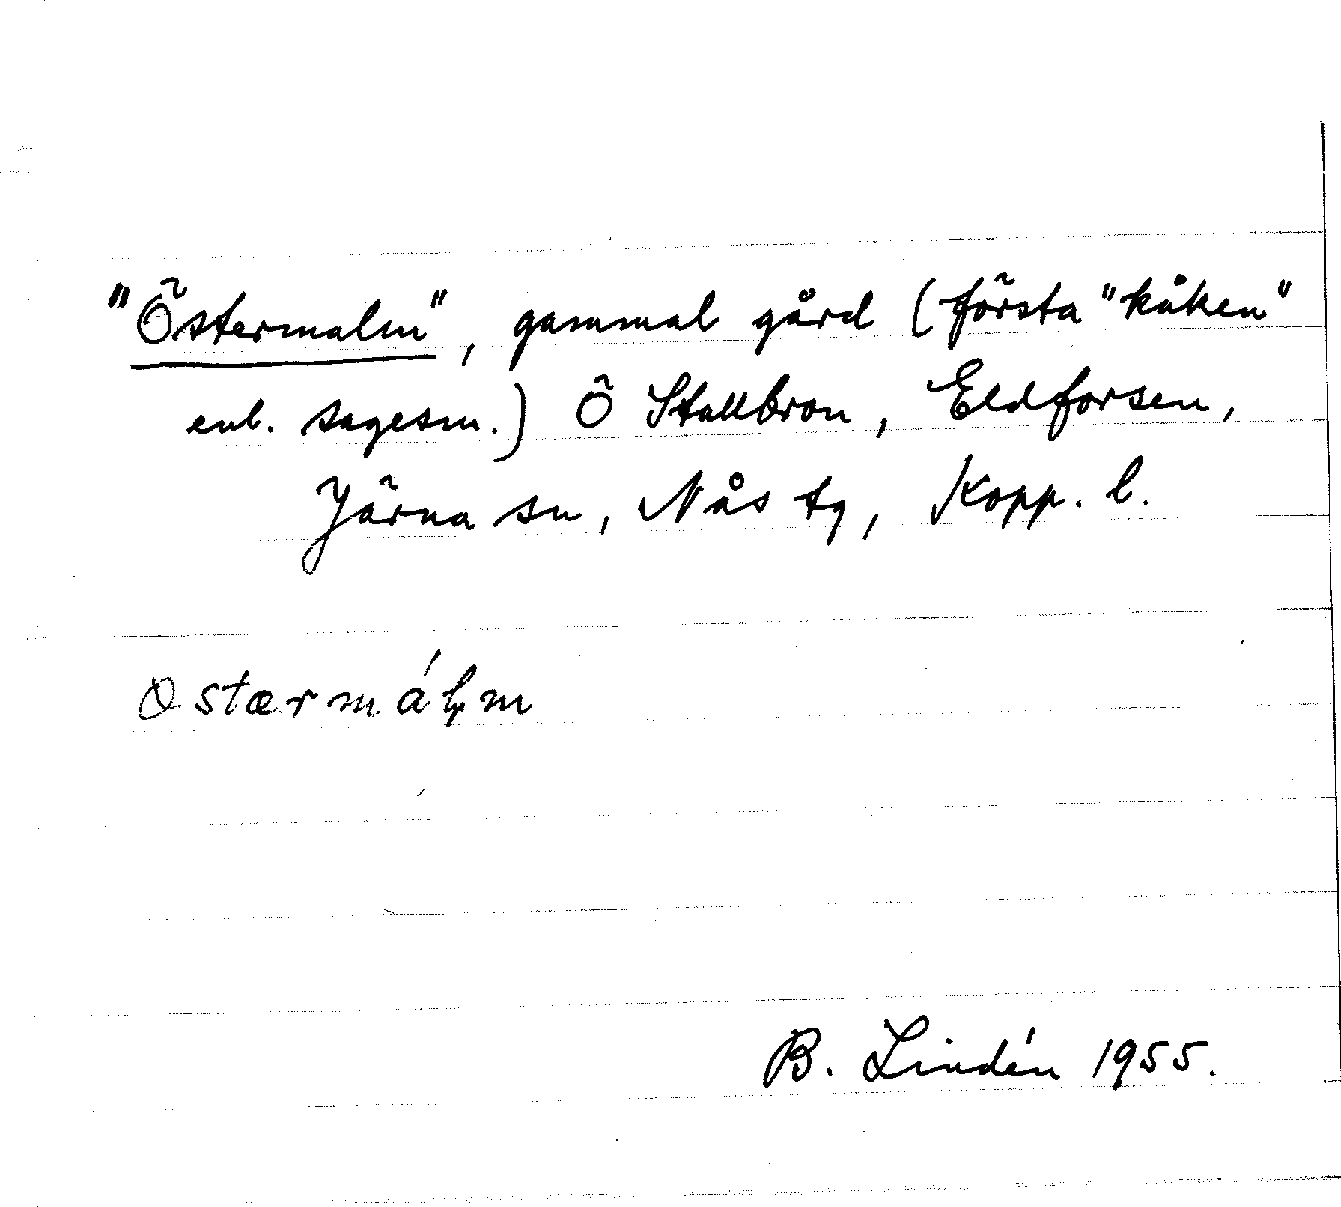 "Östermalm", gammal gård (första "kåken"
enl. sagesm.) Ö Stallbron, Eldforsen,
Järna sn, Nås tg, Kopp. l.
B. Lindén 1955.